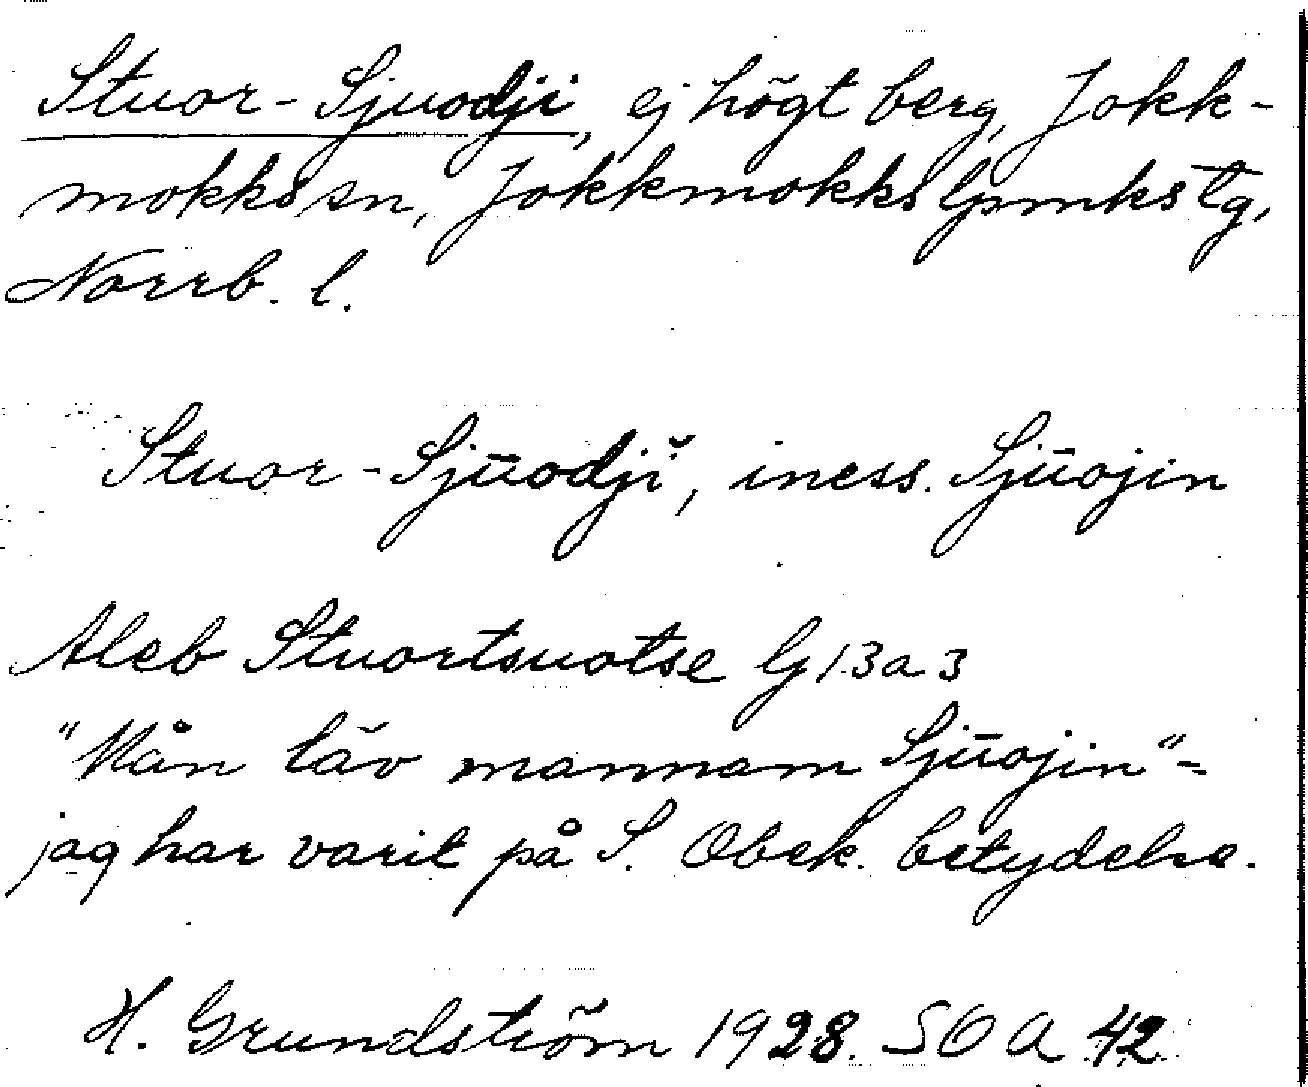 Stuor-Sjuodji, ej högt berg, Jokk-
mokks sn, Jokkmokks lpmks tg,
Norrb. l.
Stuor-Sjūodjĭ, iness. Sjūojin
Aleb Stuortsuotse Gl 13a3
"Mån läv mannam Sjūojin" =
jag har varit på S. Obek. betydelse.
H. Grundström 1928. SOA 42